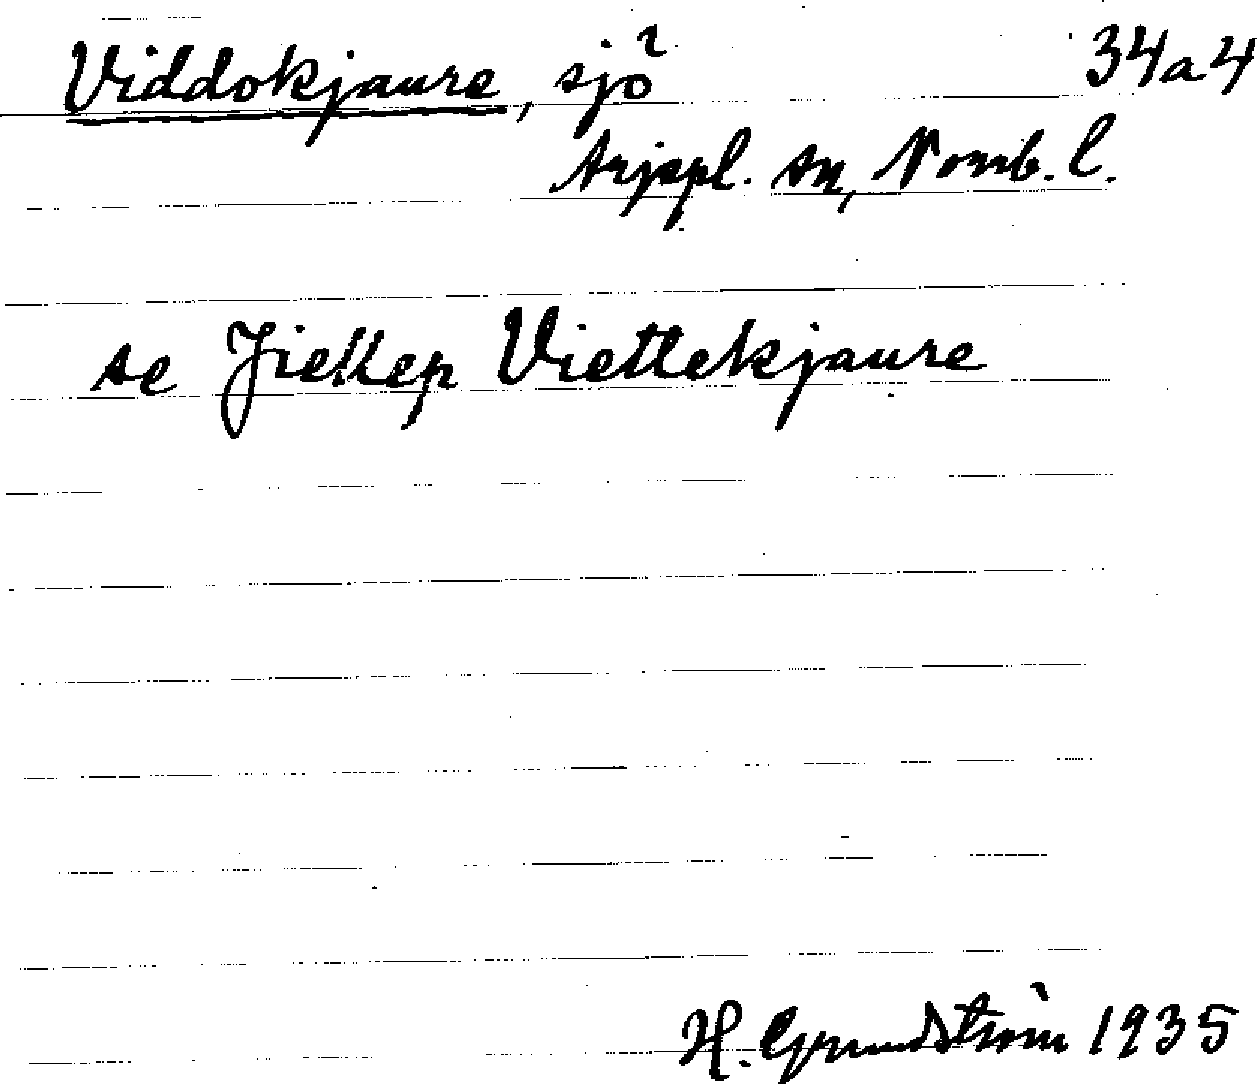 Viddokjaure, sjö 34a4
Arjepl. sn, Norrb. l.
se Jiekkep Viettekjaure
H. Grundström 1935